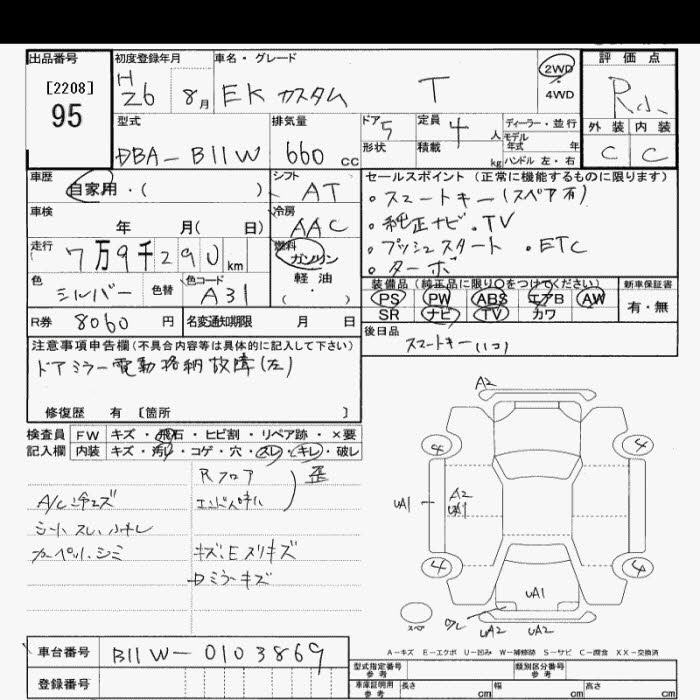 出品番号 初度登録年月 車名・グレード 評価点
[2208] 95
H26 8月 EK カスタム T 2WD ・ 4WD R小
型式 排気量 ドア 5 定員 4人 ディーラー・並行 外装 内装
DBA-B11W 660cc 形状 積載 kg モデル年式 年 ハンドル 左・右 C C
車歴 シフト セールスポイント(正常に機能するものに限ります)
自家用・( ) AT ・スマートキー(スペア有)
車検 冷房 ・純正ナビ ・TV
年 月( 日) AAC ・プッシュスタート ・ETC
走行 7万9千290km 燃料 ガソリン ・ターボ
色 色替 色コード 軽油 装備品(純正品に限り○をつけてください) 新車保証書
シルバー A31 ( ・ ) PS PW ABS エアB AW 有・無
SR ナビ TV カワ
R券 8060円 名変通知期限 月 日 後日品
スマートキー(1コ)
注意事項申告欄(不具合内容等は具体的に記入して下さい)
ドアミラー電動格納故障(左)
修復歴 有 〔箇所 〕
検査員 FW キズ・飛石・ヒビ割・リペア跡・×要
記入欄 内装 キズ・汚レ・コゲ・穴・スレ・キレ・破レ
Rフロア
歪
エンドパネル
シート スレ、
カーペット、シミ
キズ、E スリキズ
ミラーキズ
A2
4 4
UA1 A2
UA1
4 4
UA1
スペア
UA2 UA2
A-キズ E-エクボ U-凹み W-補修跡 S-サビ C-腐食 XX-交換済
車台番号 B11W-0103869
型式指定番号 参考 類別区分番号 参考
登録番号
車庫証明用 参考 長さ cm 幅 cm 高さ cm